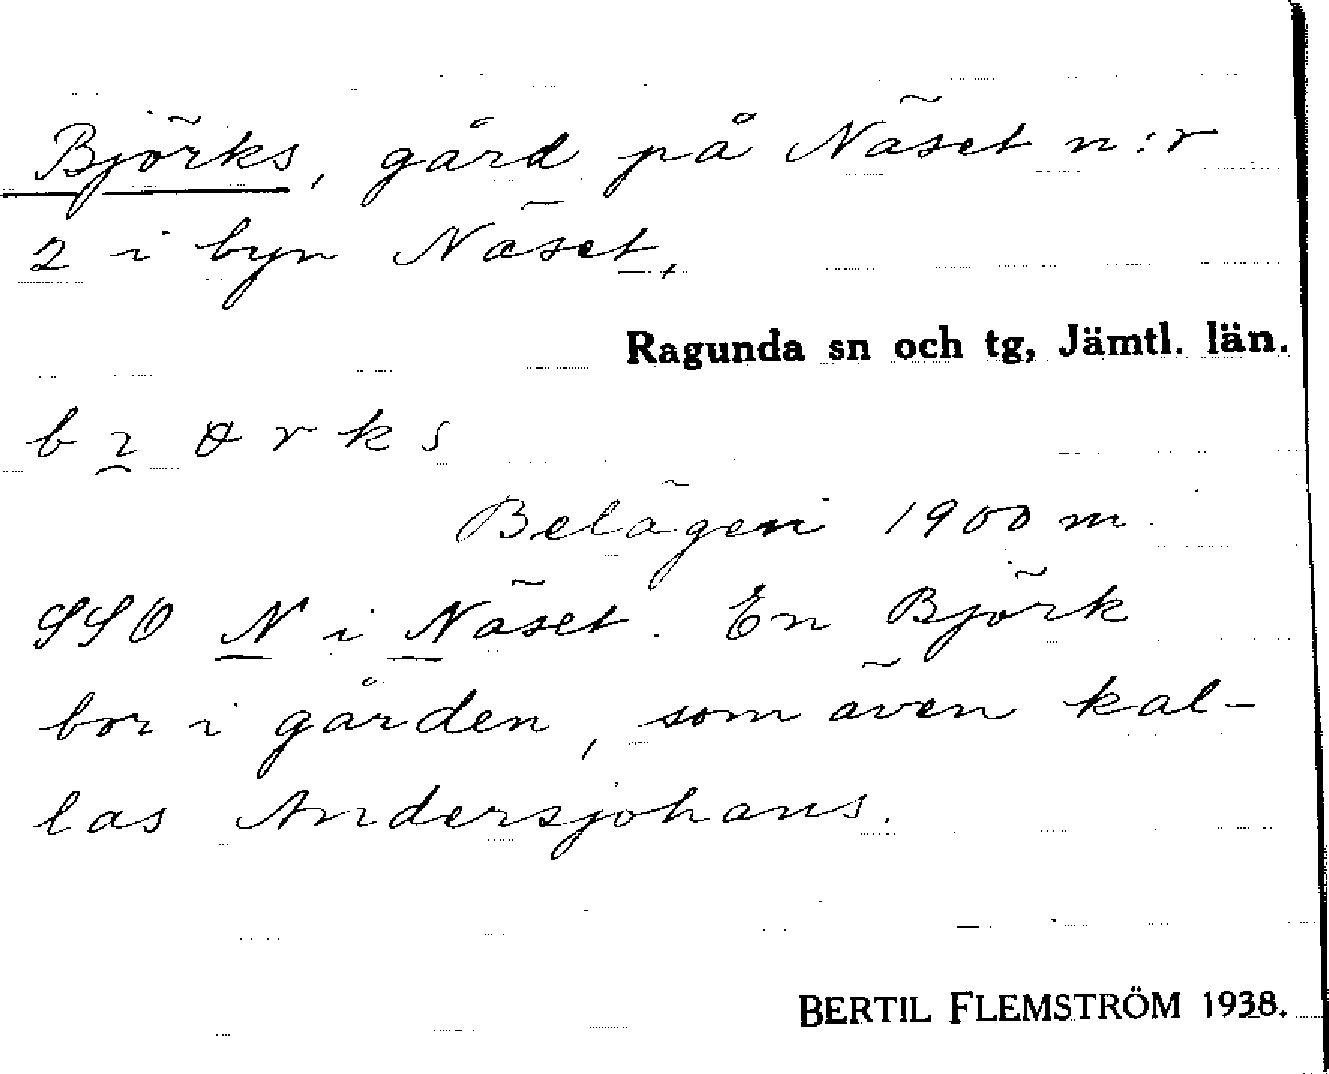 Björks, gård på Näset n:r
2 i byn Näset,
Ragunda sn och tg, Jämtl. län.
b i̯ ø r k s
Belägen 1900 m
SSO N i Näset. En Björk
bor i gården, som även kal-
las Andersjohans.
BERTIL FLEMSTRÖM 1938.